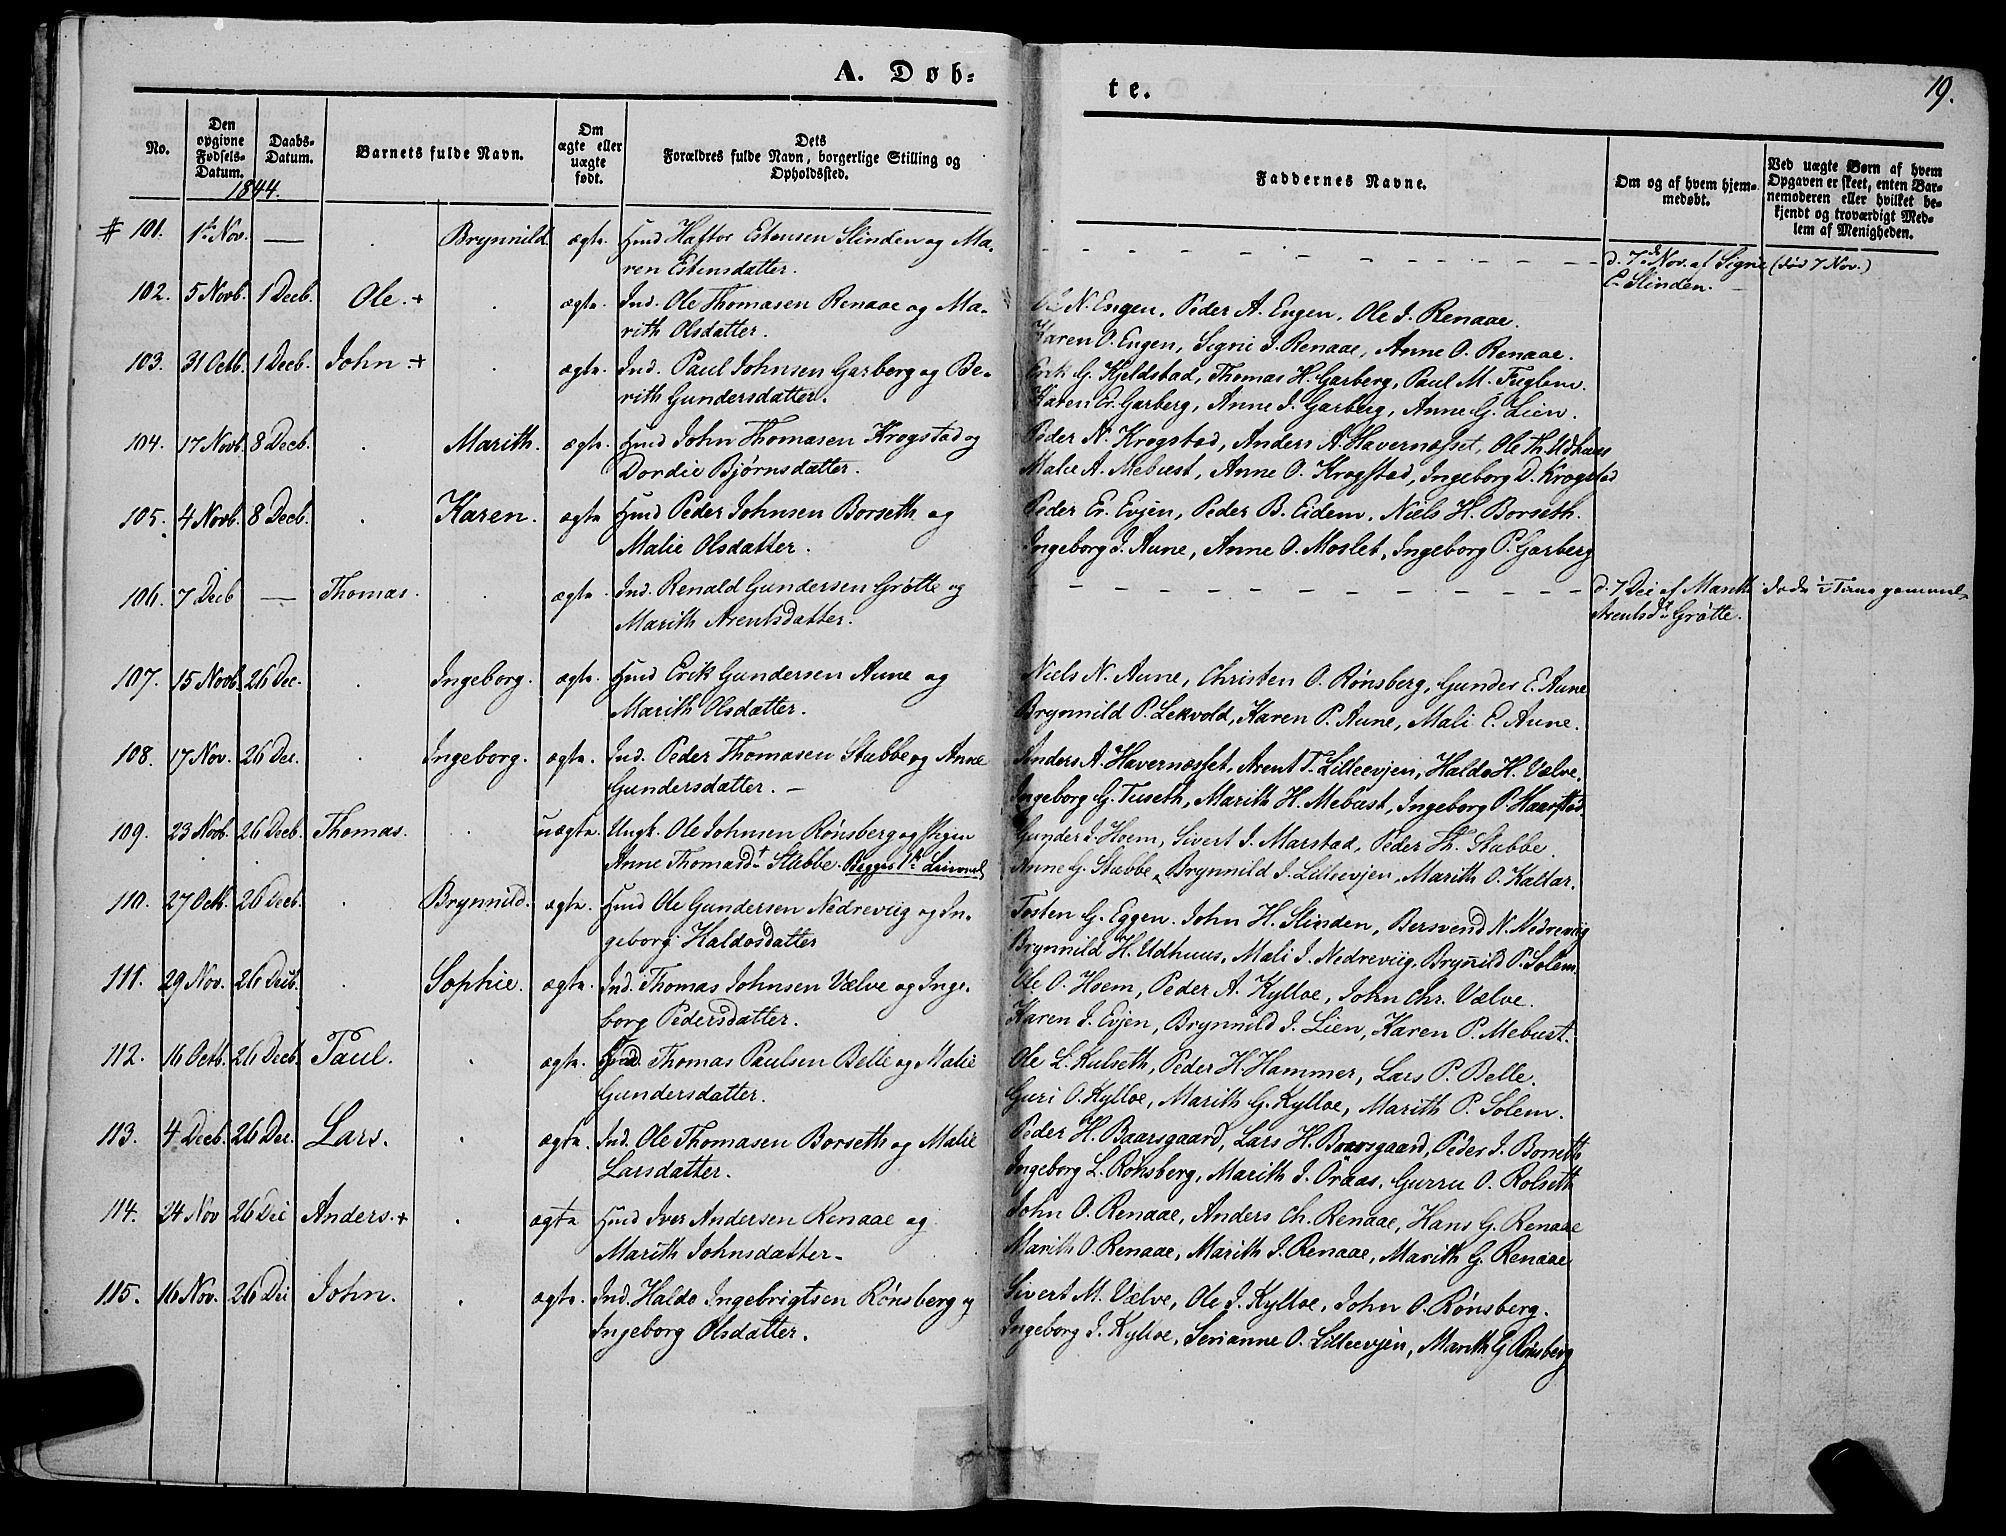 A. Døb-
te.
19.
No.
Den opgivne Fødsels-Datum.
Daabs-Datum.
Barnets fulde Navn.
Om ægte eller uægte født.
Dets Forældres fulde Navn, borgerlige Stilling og Opholdssted.
Faddernes Navne.
Om og af hvem hjem-medøbt.
Ved uægte Børn af hvem Opgaven er skeet, enten Bar-nemoderen eller hvilket be-kjendt og troværdigt Med-lem af Menigheden.
1844.
# 101. 1ste Nov. — . Brynnild. ægte. Huusmd Haftor Estensen Slinden og Ma-
ren Estensdatter.
d. 7de Nov. af Signe (død 7 Nov.)
E. Slinden.
102. 5 Novb. 1 Decb. Ole. + . ægte. Ind. Ole Thomasen Renaae og Ma-
rith Olsdatter.
N. Engen, Peder A. Engen, Ole J. Renaae.
Karen O. Engen, Signi J. Renaae, Anne O. Renaae.
103. 31 Octb. 1 Decb. John. + . ægte. Ind. Paul Johnsen Garberg og Be-
rith Gundersdatter.
Erik G. Kjeldstad, Thomas H. Garberg, Paul M. Fuglem.
Karen Er. Garberg, Anne J. Garberg, Anne G. Lien.
104. 17 Novb. 8 Decb. . Marith. ægte. Hmd John Thomasen Krogstad og
Dordie Bjørnsdatter.
Peder N. Krogstad, Anders A. Havernæsset, Ole Th. Udhuus
Malie A. Mebust, Anne O. Krogstad, Ingeborg D. Krogstad
105. 4 Novb. 8 Decb. . Karen. ægte Hmd Peder Johnsen Borseth og
Malie Olsdatter.
Peder Er. Evjen, Peder B. Eidem, Niels H. Borseth.
Ingeborg J. Aune, Anne O. Moslet, Ingeborg P. Garberg
106. 7 Decb — Thomas. . ægte. Ind. Renald Gundersen Grøtte og
Marith Arentsdatter.
d. 7 Dec af Marith døde ½ Time gammel
Arentsdt. Grøtte.
107. 15 Novb. 26 Dec. . Ingeborg. ægte. Hmd Erik Gundersen Aune og
Marith Olsdatter.
Niels N. Aune, Christen O. Rønsberg, Gunder E. Aune
Brynnild P. Lekvold, Karen P. Aune, Mali E. Aune.
108. 17 Nov. 26 Dec. . Ingeborg. ægte. Ind. Peder Thomasen Stubbe og Anne
Gundersdatter. —
Anders A. Havernæsset, Arent T. Lilleevjen, Haldo H. Vælve.
Ingeborg G. Tuseth, Marith H. Mebust, Ingeborg P. Haarstad.
109. 23 Novb. 26 Decb. Thomas. . uægte. Ungk. Ole Johnsen Rønsberg og Pigen
Anne Thomasdt. Stubbe. Begges 1te Leiermaal
Gunder J. Hoem, Sivert J. Marstad, Peder Th. Stubbe.
Anne G. Stubbe, Brynnild J. Lilleevjen, Marith O. Kaltar.
110. 27 Oct. 26 Decb. . Brynnild. ægte. Hmd Ole Gundersen Nedreviig og In-
geborg Haldosdatter
Tosten G. Eggen. John H. Slinden, Bersvend N. Nedreviig
Brynnild H. Udhuus, Mali J. Nedreviig, Brynild P. Solem.
111. 29 Nov. 26 Decb. . Sophie. ægte. Ind. Thomas Johnsen Vælve og Inge-
borg Pedersdatter.
Ole O. Hoem, Peder A. Kylloe, John Chr. Vælve.
Karen J. Evjen, Brynnild J. Lien, Karen P. Mebust.
112. 16 Octb. 26 Decb. Paul. . ægte. Hmd. Thomas Paulsen Belle og Malie
Gundersdatter.
Ole L. Kulseth, Peder H. Hammer, Lars P. Belle.
Guri O. Kylloe, Marith G. Kylloe, Marith P. Solem.
113. 4 Decb. 26 Dec. Lars. . ægte. Ind. Ole Thomasen Borseth og Malie
Larsdatter.
Peder H. Baarsgaard, Lars H. Baarsgaard, Peder J. Borseth
Ingeborg L. Rønsberg, Marith J. Oraas, Gurru O. Rolseth
114. 24 Nov 26 Dec Anders. + . ægte Hmd Iver Andersen Renaae og
Marith Johnsdatter.
John O. Renaae, Anders Ch. Renaae, Hans G. Renaae
Marith O. Renaae, Marith J. Renaae, Marith G. Renaae
115. 16 Nov. 26 Dec John. . ægte. Ind. Haldo Ingebrigtsen Rønsberg og
Ingeborg Olsdatter.
Sivert M. Vælve, Ole J. Kylloe, John O. Rønsberg.
Ingeborg J. Kylloe, Serianne O. Lilleevjen, Marith G Rønsberg